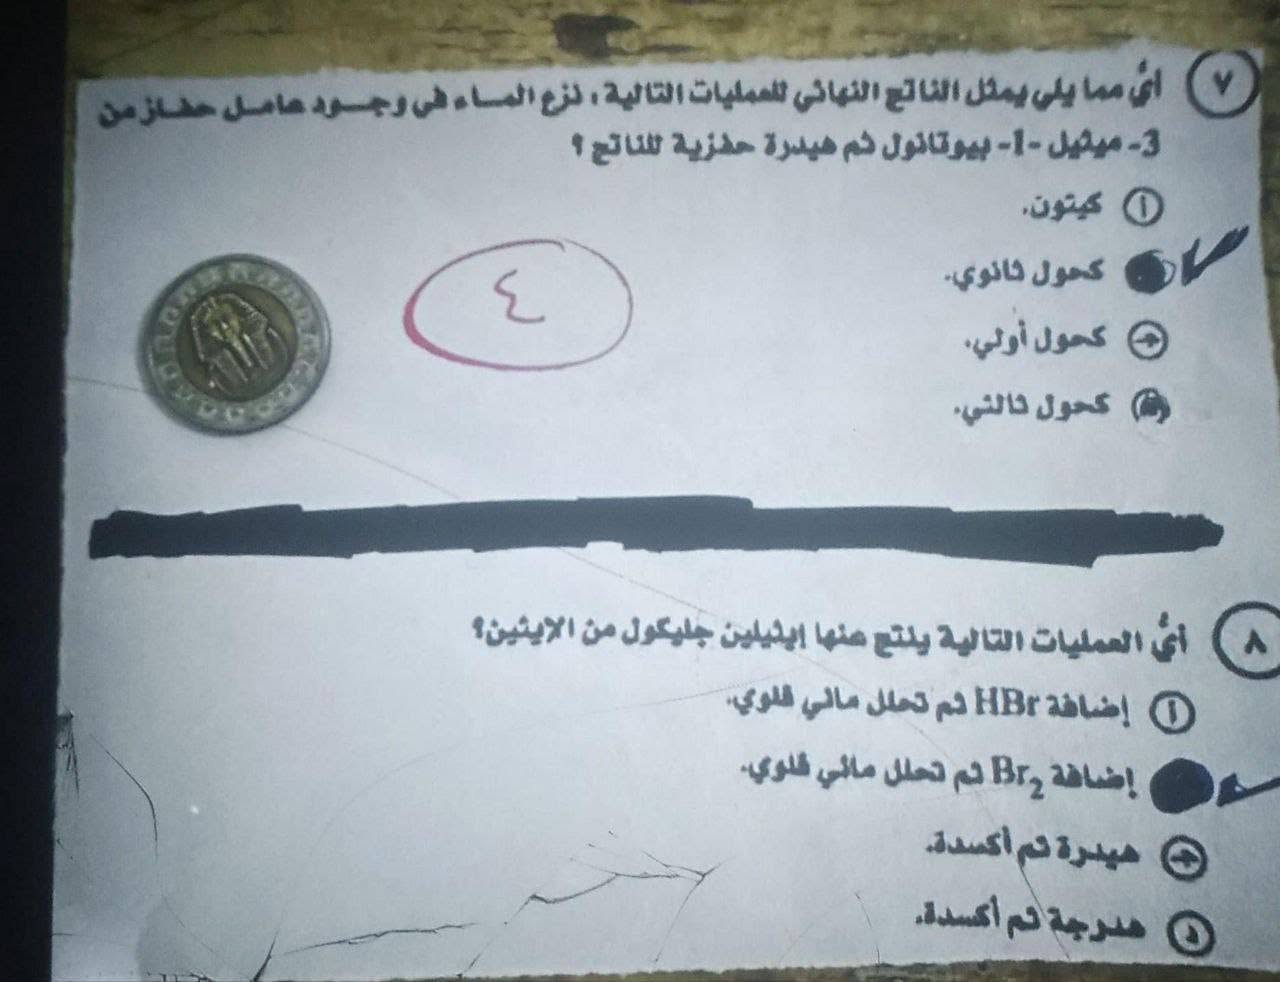 ٧ أيُّ مما يلي يمثل الناتج النهائي للعمليات التالية، نزع الماء في وجود عامل حفاز من
3- ميثيل -1- بيوتانول ثم هيدرة حفزية للناتج ؟
أ كيتون.
كحول ثانوي.
ج كحول أولي.
كحول ثالثي.
٤
٨ أيُّ العمليات التالية ينتج عنها إيثيلين جليكول من الإيثين؟
أ إضافة HBr ثم تحلل مائي قلوي.
إضافة Br₂ ثم تحلل مائي قلوي.
ج هيدرة ثم أكسدة.
د هدرجة ثم أكسدة.